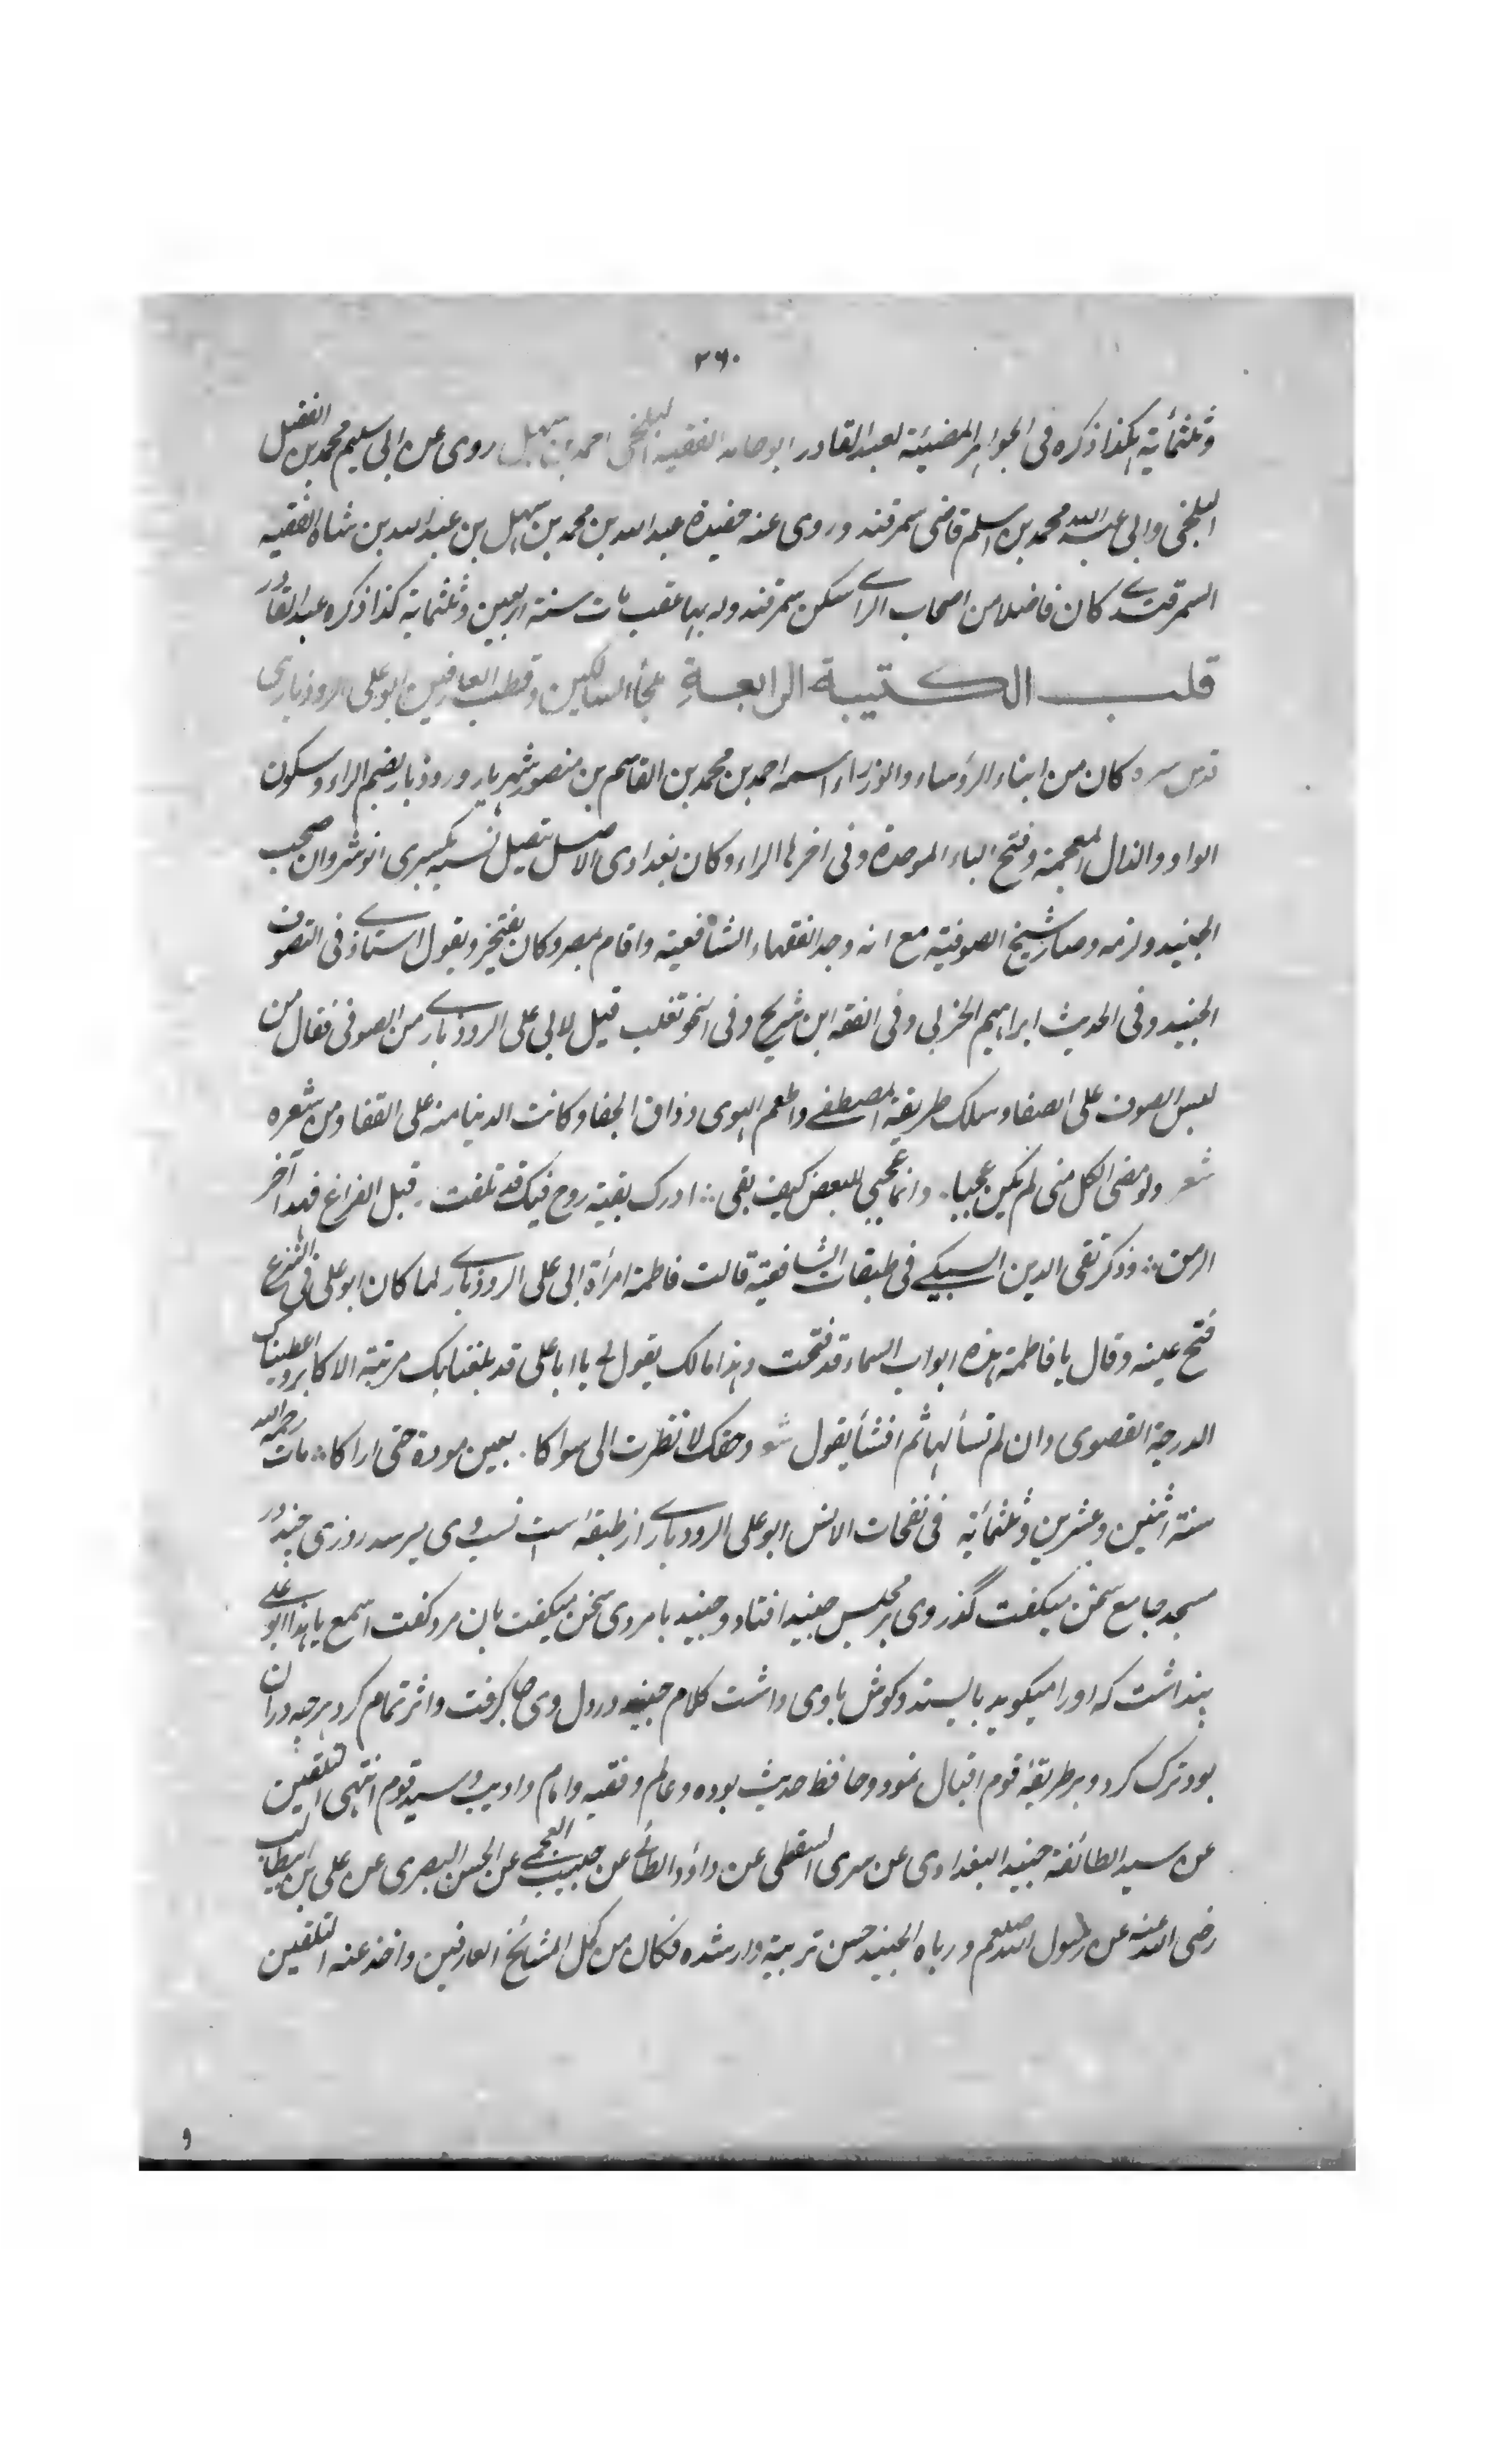 ٢٦٠
وثلثمائة هكذا ذكره فى الجواهر المضيئة لعبد القادر ابو حامد الفقيه البلخى احمد بن سهل روى عن ابى سليم محمد بن الفضل
البلخى وابى عبد الله محمد بن اسلم قاضى سمرقند وروى عنه حفيده عبد الله بن محمد بن سهل بن عبد الله بن شاه الفقيه
السمرقندے كان فاضلا من اصحاب الراے سكن سمرقند وله بها عقب مات سنة اربعين وثلثمائة كذا ذكره عبد القادر
قلب الكتيبة الرابعة ملجأ السالكين وقطب العارفين ابو على الروذبارى
قدس سره كان من ابناء الرؤساء والوزراء اسمه احمد بن محمد بن القاسم بن منصور شهريار وروذبار بضم الراء وسكون
الواو والذال المعجمة وفتح الباء الموحدة وفى اخرها الراء وكان بغدادى الاصل يتصل نسبه بكسرى انوشروان صحب
الجنيد ولزمه وصار شيخ الصوفية مع انه وجد الفقهاء الشافعية واقام بمصر وكان يفتخر ويقول استاذے فى التصوف
الجنيد وفى الحديث ابراهيم الحربى وفى الفقه ابن شريح وفى النحو تغلب قيل لابى على الروذبارے من الصوفى فقال من
لبس الصوف على الصفا وسلك طريقة المصطفے واطعم الهوى وذاق الجفا وكانت الدنيا منه على القفا ومن شعره
شعر ولو مضى الكل منى لم يكن عجبا . وانما عجبى للبعض كيف بقى ∴ ادرك بقية روح فيك قد تلفت . قبل الفراغ فهذا آخر
الرمق ∴ وذكر تقى الدين السبكے فى طبقات الشافعية قالت فاطمة امرأة ابى على الروذبارے لما كان ابو على فى النزع
فتح عينه وقال يا فاطمة هذه ابواب السماء قد فتحت وهذا مالك يقول لى يا ابا على قد بلغنا بك مرتبة الاكابر واعطيناك
الدرجة القصوى وان لم تسألها ثم انشأ يقول شعر وحقك لا نظرت الى سواكا . بعين مودة حتى اراكا ∴ مات رحمه الله
سنة اثنين وعشرين وثلثمائة فى نفحات الانس ابو على الرودبارے از طبقه است نسب وى بر سد روزى جنيد در
مسجد جامع سخن ميكفت گذر وى بر مجلس جنيد افتاد وجنيد با مردى سخن ميكفت بان مرد كفت اسمع يا هذا ابو علے
پنداشت كه اورا ميكويد بايستد وكوش با وى داشت كلام جنيد در دل وى جا كرفت واثر تمام كرد هرچه دران
بود ترك كرد وبر طريقهٔ قوم اقبال نمود وحافظ حديث بوده وعالم وفقيه وامام واديب وسيد قوم انتهى تلقين
عن سيد الطائفة جنيد البغدادى عن سرى السقطى عن داؤد الطائے عن حبيب العجمے عن الحسن البصرى عن على بن ابيطالب
رضى الله عنه عن رسول الله صلعم ورباه الجنيد حسن تربية وارشده فكان من كمل المشائخ العارفين واخذ عنه التلقين
و